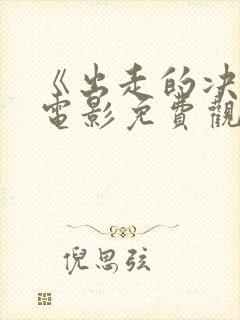 《出走的决
電影免費觀
倪思弦